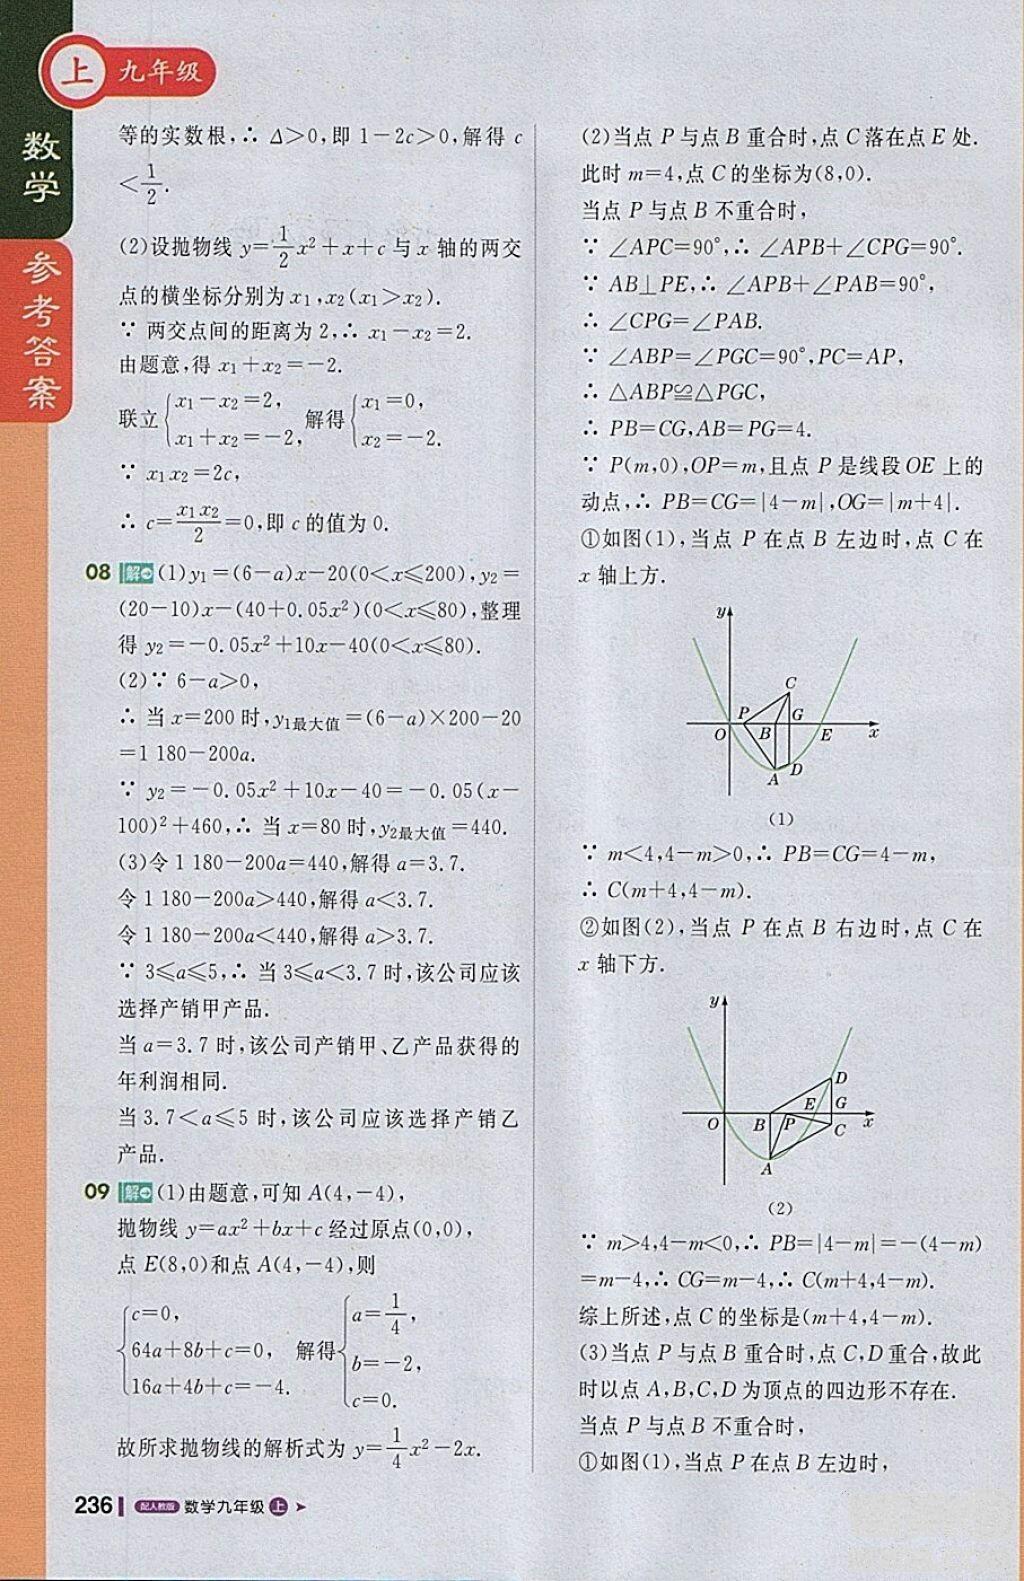 上 九年级
数学
参考答案
等的实数根,∴ Δ>0,即 1-2c>0,解得 c
<1/2.
(2)设抛物线 y=1/2x²+x+c 与 x 轴的两交
点的横坐标分别为 x₁,x₂(x₁>x₂).
∵ 两交点间的距离为 2,∴ x₁-x₂=2.
由题意,得 x₁+x₂=-2.
联立{x₁-x₂=2, x₁+x₂=-2, 解得{x₁=0, x₂=-2.
∵ x₁x₂=2c,
∴ c=x₁x₂/2=0,即 c 的值为 0.
08 解 (1)y₁=(6-a)x-20(0<x≤200),y₂=
(20-10)x-(40+0.05x²)(0<x≤80),整理
得 y₂=-0.05x²+10x-40(0<x≤80).
(2)∵ 6-a>0,
∴ 当 x=200 时,y₁最大值=(6-a)×200-20
=1 180-200a.
∵ y₂=-0.05x²+10x-40=-0.05(x-
100)²+460,∴ 当 x=80 时,y₂最大值=440.
(3)令 1 180-200a=440,解得 a=3.7.
令 1 180-200a>440,解得 a<3.7.
令 1 180-200a<440,解得 a>3.7.
∵ 3≤a≤5,∴ 当 3≤a<3.7 时,该公司应该
选择产销甲产品.
当 a=3.7 时,该公司产销甲、乙产品获得的
年利润相同.
当 3.7<a≤5 时,该公司应该选择产销乙
产品.
09 解 (1)由题意,可知 A(4,-4),
抛物线 y=ax²+bx+c 经过原点(0,0),
点 E(8,0)和点 A(4,-4),则
{c=0, 64a+8b+c=0, 16a+4b+c=-4. 解得{a=1/4, b=-2, c=0.
故所求抛物线的解析式为 y=1/4x²-2x.
(2)当点 P 与点 B 重合时,点 C 落在点 E 处.
此时 m=4,点 C 的坐标为(8,0).
当点 P 与点 B 不重合时,
∵ ∠APC=90°,∴ ∠APB+∠CPG=90°.
∵ AB⊥PE,∴ ∠APB+∠PAB=90°,
∴ ∠CPG=∠PAB.
∵ ∠ABP=∠PGC=90°,PC=AP,
∴ △ABP≌△PGC,
∴ PB=CG,AB=PG=4.
∵ P(m,0),OP=m,且点 P 是线段 OE 上的
动点,∴ PB=CG=|4-m|,OG=|m+4|.
①如图(1),当点 P 在点 B 左边时,点 C 在
x 轴上方.
y
C
P B G
O E x
A D
(1)
∵ m<4,4-m>0,∴ PB=CG=4-m,
∴ C(m+4,4-m).
②如图(2),当点 P 在点 B 右边时,点 C 在
x 轴下方.
y
D
E G
O B P C x
A
(2)
∵ m>4,4-m<0,∴ PB=|4-m|=-(4-m)
=m-4,∴ CG=m-4,∴ C(m+4,4-m).
综上所述,点 C 的坐标是(m+4,4-m).
(3)当点 P 与点 B 重合时,点 C,D 重合,故此
时以点 A,B,C,D 为顶点的四边形不存在.
当点 P 与点 B 不重合时,
①如图(1),当点 P 在点 B 左边时,
236 配人教版 数学九年级 上